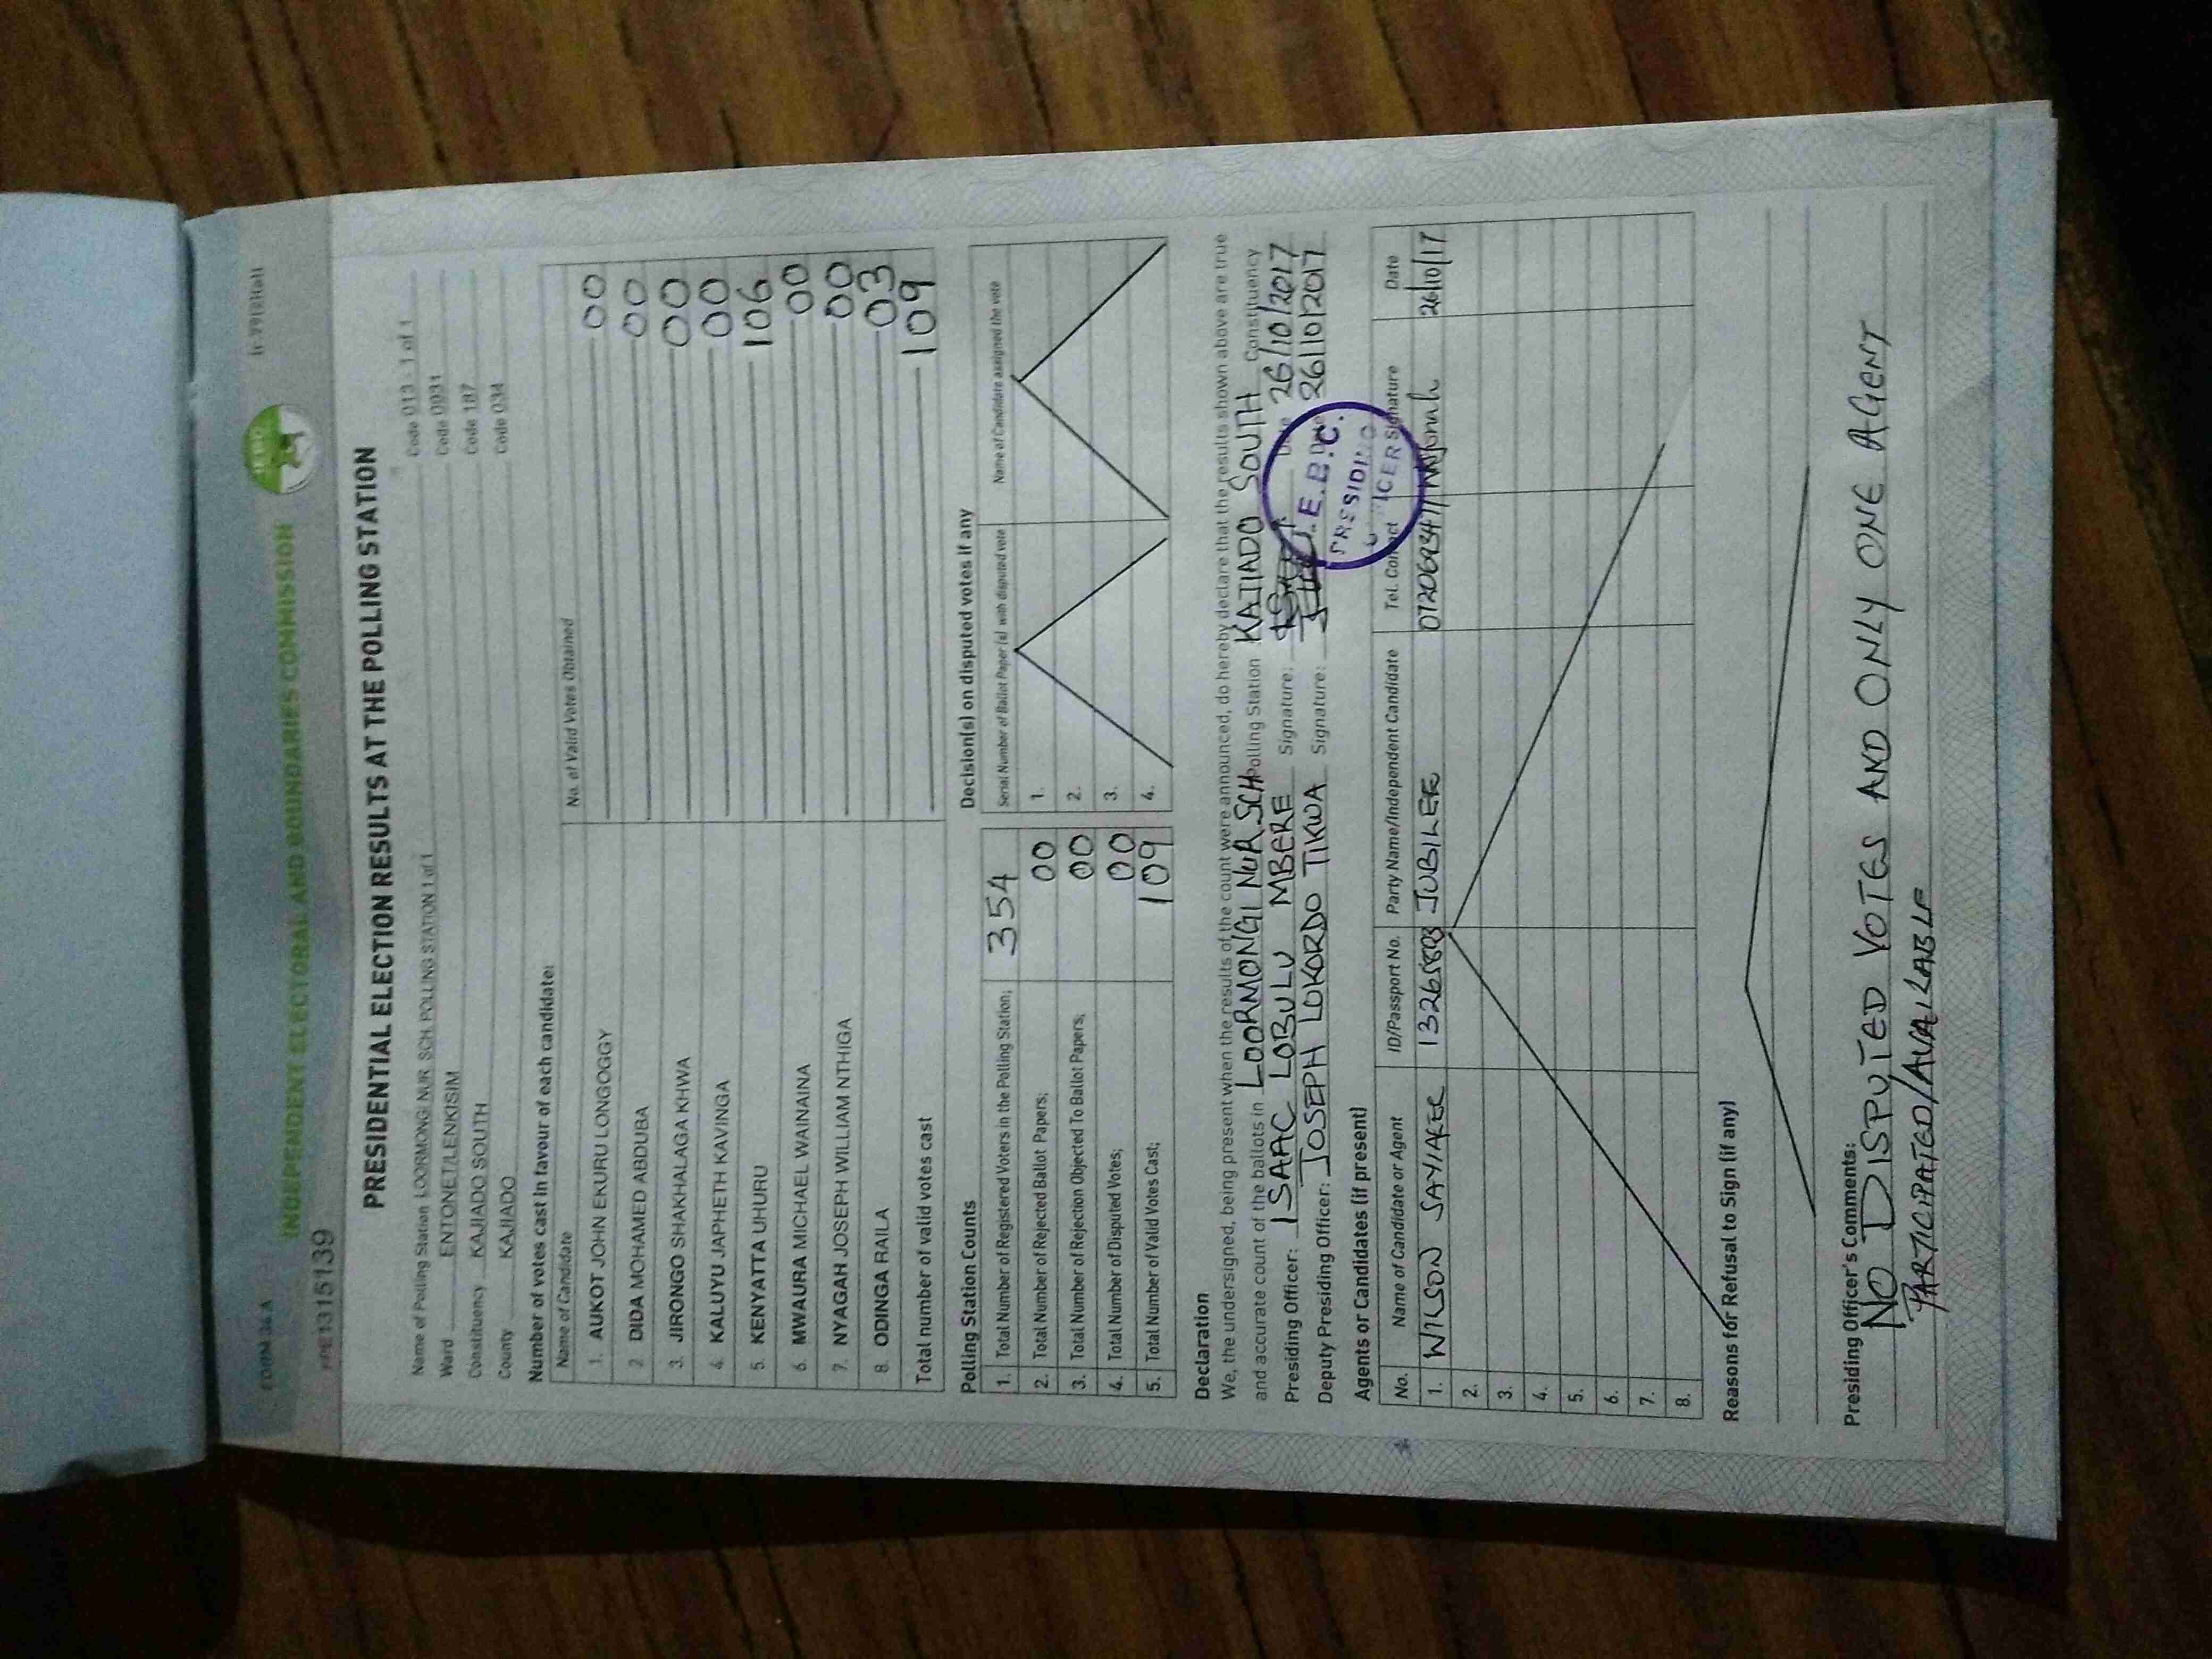 FORM 34 A
INDEPENDENT ELECTORAL AND BOUNDARIES COMMISSION
PPE1315139
PRESIDENTIAL ELECTION RESULTS AT THE POLLING STATION
Name of Polling Station LOORMONGI NUR. SCH. POLLING STATION 1 of 1 Code 013 - 1 of 1
Ward ENTONET/LENKISIM Code 0931
Constituency KAJIADO SOUTH Code 187
County KAJIADO Code 034
Number of votes cast in favour of each candidate:
Name of Candidate No. of Valid Votes Obtained
1. AUKOT JOHN EKURU LONGOGGY 00
2. DIDA MOHAMED ABDUBA 00
3. JIRONGO SHAKHALAGA KHWA 00
4. KALUYU JAPHETH KAVINGA 00
5. KENYATTA UHURU 106
6. MWAURA MICHAEL WAINAINA 00
7. NYAGAH JOSEPH WILLIAM NTHIGA 00
8. ODINGA RAILA 03
Total number of valid votes cast 109
Polling Station Counts
1. Total Number of Registered Voters in the Polling Station; 354
2. Total Number of Rejected Ballot Papers; 00
3. Total Number of Rejection Objected To Ballot Papers; 00
4. Total Number of Disputed Votes; 00
5. Total Number of Valid Votes Cast; 109
Decision(s) on disputed votes if any
Serial Number of Ballot Paper (s) with disputed vote Name of Candidate assigned the vote
1.
2.
3.
4.
Declaration
We, the undersigned, being present when the results of the count were announced, do hereby declare that the results shown above are true
and accurate count of the ballots in LOORMONGI NUR SCH Polling Station KAJIADO SOUTH Constituency
Presiding Officer: ISAAC LOBULU MBERE Signature: Date 26/10/2017
Deputy Presiding Officer: JOSEPH LOKORDO TIKWA Signature: Date 26/10/2017
I.E.B.C.
PRESIDING
OFFICER
Agents or Candidates (if present)
No. Name of Candidate or Agent ID/Passport No. Party Name/Independent Candidate Tel. Contact Signature Date
1. WILSON JUBILEE 26/10/17
2.
3.
4.
5.
6.
7.
8.
Reasons for Refusal to Sign (if any)
Presiding Officer's Comments:
NO DISPUTED VOTES AND ONLY ONE AGENT
PARTICIPATED/AVAILABLE